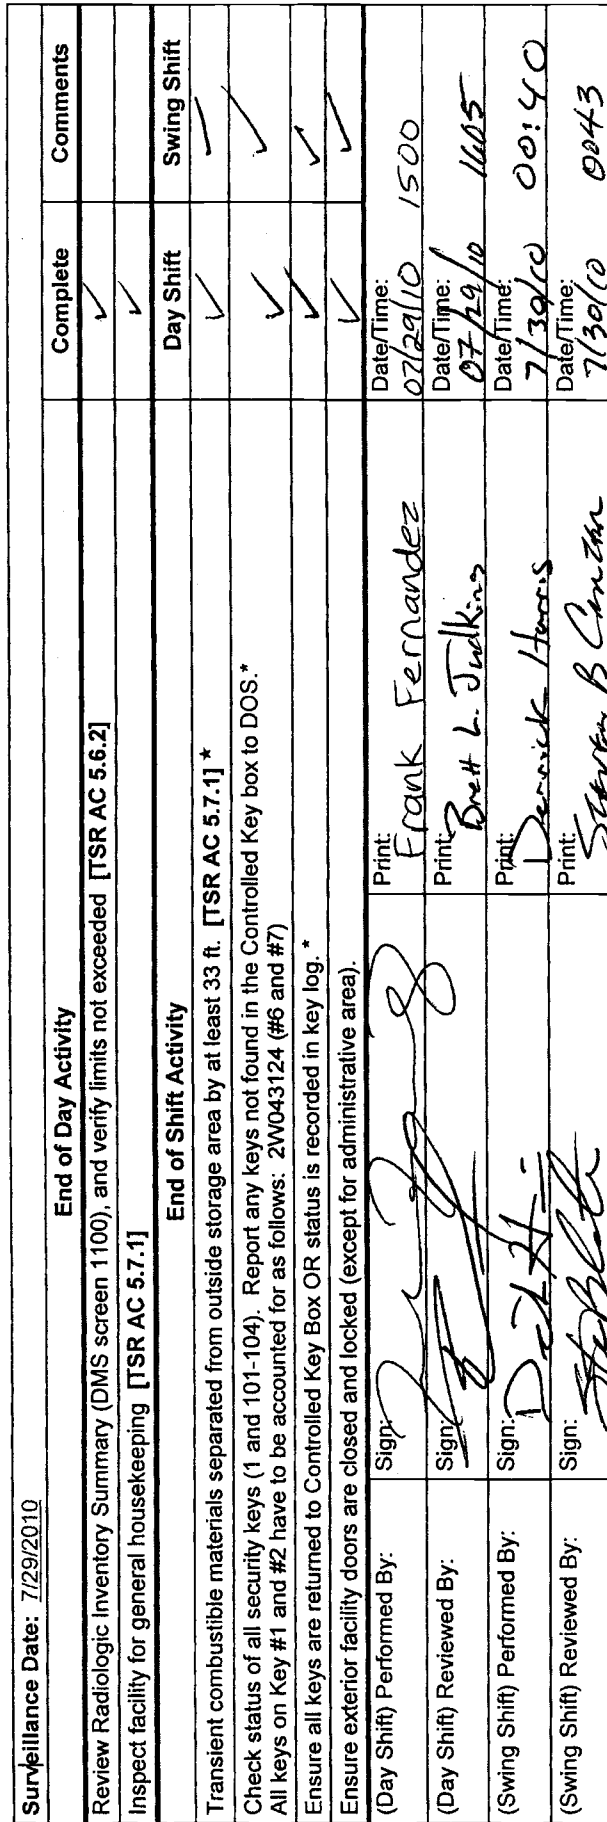 Surveillance Date: 7/29/2010
End of Day Activity Complete Comments
Review Radiologic Inventory Summary (DMS screen 1100), and verify limits not exceeded [TSR AC 5.6.2] ✓
Inspect facility for general housekeeping [TSR AC 5.7.1] ✓
End of Shift Activity Day Shift Swing Shift
Transient combustible materials separated from outside storage area by at least 33 ft. [TSR AC 5.7.1] * ✓ ✓
Check status of all security keys (1 and 101-104). Report any keys not found in the Controlled Key box to DOS.* ✓ ✓
All keys on Key #1 and #2 have to be accounted for as follows: 2W043124 (#6 and #7)
Ensure all keys are returned to Controlled Key Box OR status is recorded in key log. * ✓ ✓
Ensure exterior facility doors are closed and locked (except for administrative area). ✓ ✓
(Day Shift) Performed By: Sign: Print: Frank Fernandez Date/Time: 07/29/10 1500
(Day Shift) Reviewed By: Sign: Print: Brett L. Judkins Date/Time: 07/29/10 1605
(Swing Shift) Performed By: Sign: Print: Derrick Harris Date/Time: 7/30/10 00:40
(Swing Shift) Reviewed By: Sign: Print: Steven B Date/Time: 7/30/10 0043